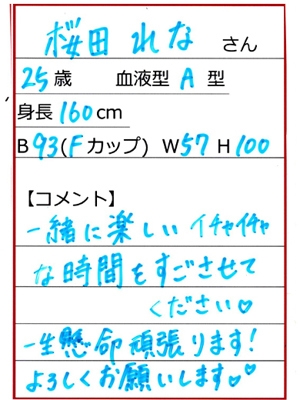 桜田 れな さん
25歳 血液型 A 型
身長 160 cm
B 93 (F カップ) W 57 H 100
【コメント】
一緒に楽しいイチャイチャ
な時間をすごさせて
ください♡
一生懸命頑張ります!
よろしくお願いします♡♡